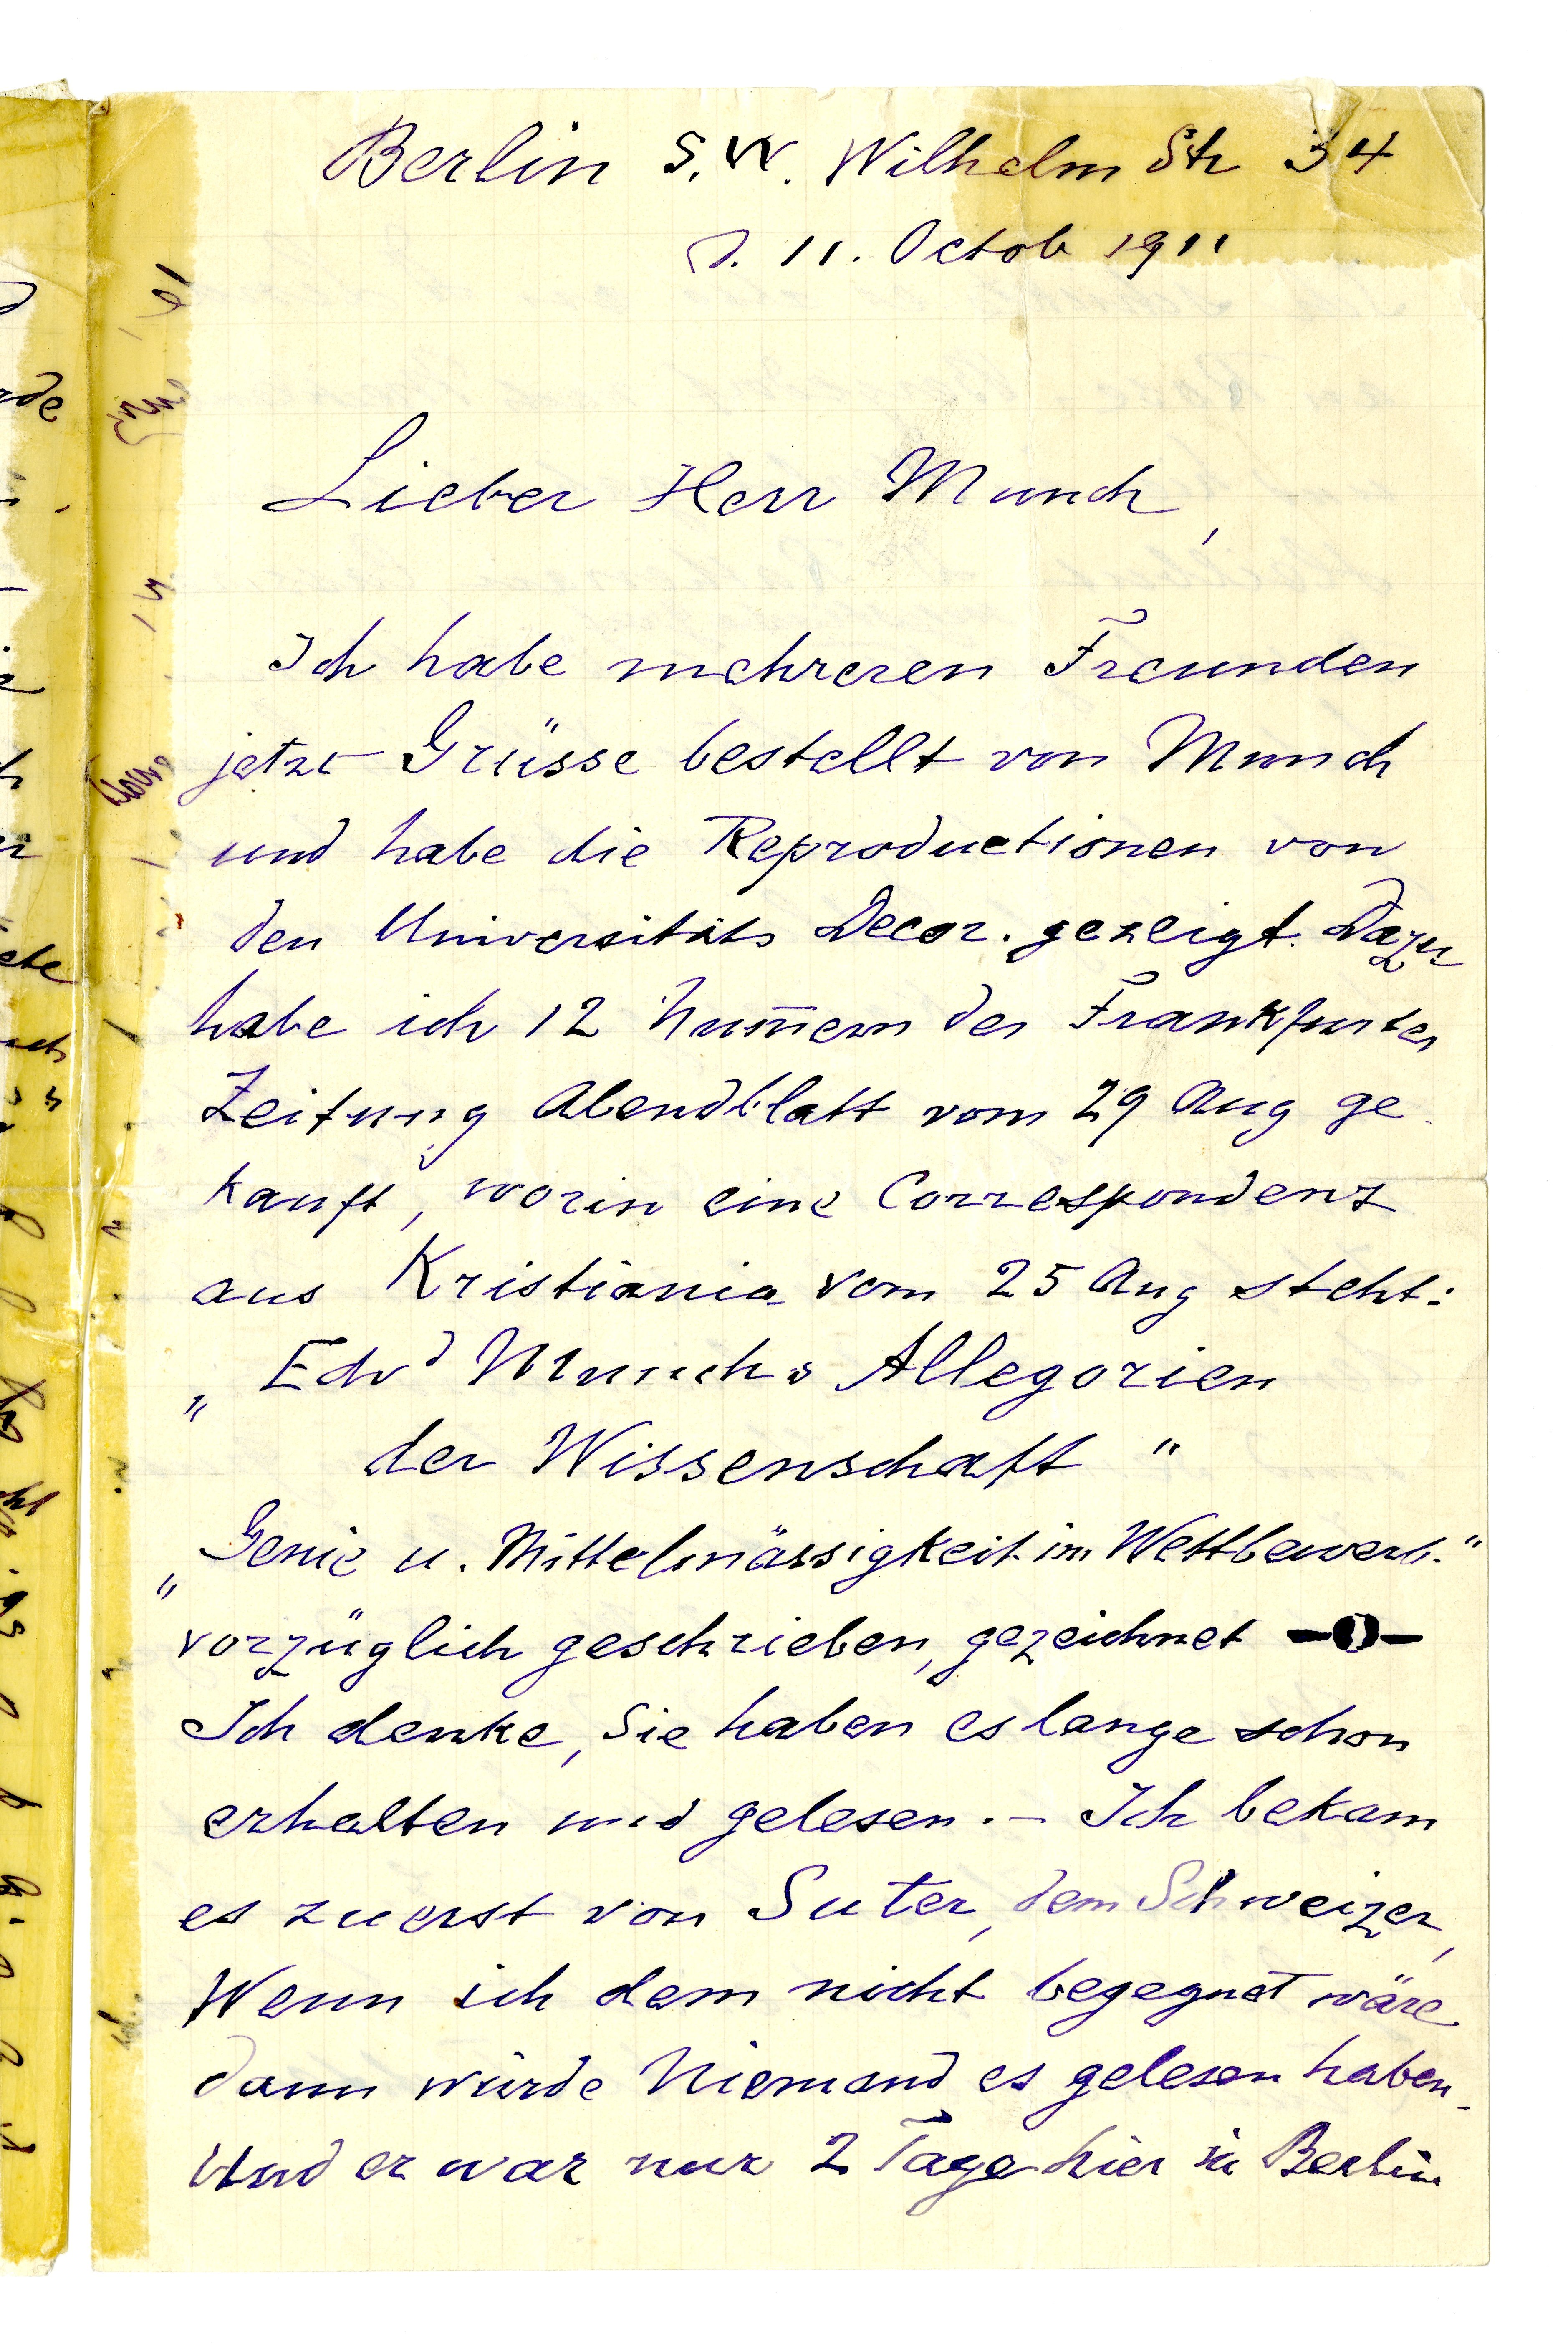 Berlin S.W. Wilhelm Str 34
d. 11. Octob 1911
Lieber Herr Munch,
Ich habe mehreren Freunden
jetzt Grüsse bestellt von Munch
und habe die Reproductionen von
den Universitäts Decor. gezeigt. Dazu
habe ich 12 Num̄ern der Frankfurter
Zeitung Abendblatt vom 29 Aug ge-
kauft, worin eine Correspondenz
aus Kristiania vom 25 Aug steht:
„Edvd Munchs Allegorien
der Wissenschaft“
„Genie u. Mittelmässigkeit im Wettbewerb.“
vorzüglich geschrieben, gezeichnet —O—
Ich denke, Sie haben es lange schon
erhalten und gelesen. — Ich bekam
es zuerst von Suter, dem Schweizer,
Wenn ich dem nicht begegnet wäre
dann würde Niemand es gelesen haben.
Und er war nur 2 Tage hier in Berlin